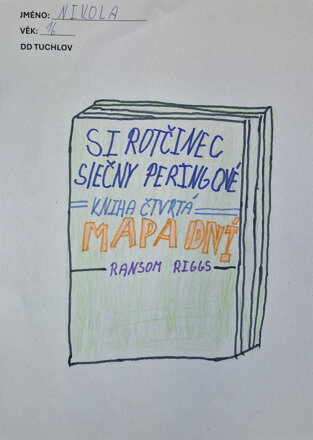 JMÉNO: NIKOLA
VĚK: 16
DD TUCHLOV
SIROTČINEC
SLEČNY PERINGOVÉ
KNIHA ČTVRTÁ
MAPA DNÍ
RANSOM RIGGS